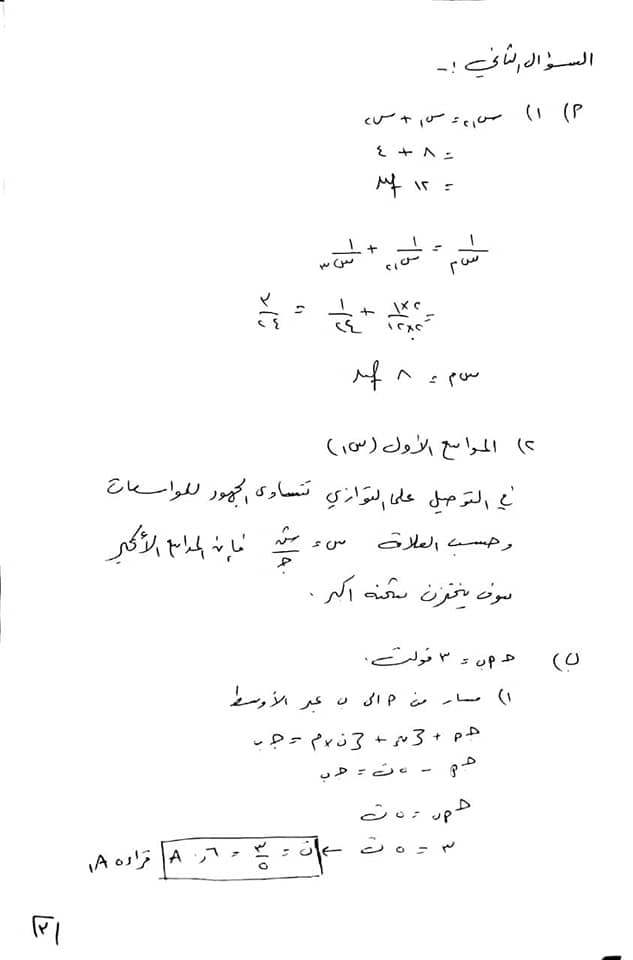 السؤال الثاني :-
أ) ١) س١،٢ = س١ + س٢
= ٨ + ٤
= ١٢ μf
١/س م = ١/س١،٢ + ١/س٣
= ٢×١/٢×١٢ + ١/٢٤ = ٣/٢٤
س م = ٨ μf
٢) المواسع الأول (س١)
في التوصيل على التوازي تتساوى الجهود للمواسعات
وحسب العلاقة س = ش/جـ فإن المواسع الأكبر
سوف يختزن شحنة اكبر .
ب) جـ أب = ٣ فولت.
١) مسار من أ الى ب عبر الأوسط
جـ أ + = جـ ب
جـ أ - ٥ت = جـ ب
جـ أب = ٥ت
٣ = ٥ت ← ت = ٣/٥ = ٠,٦ A قراءة A١
٢